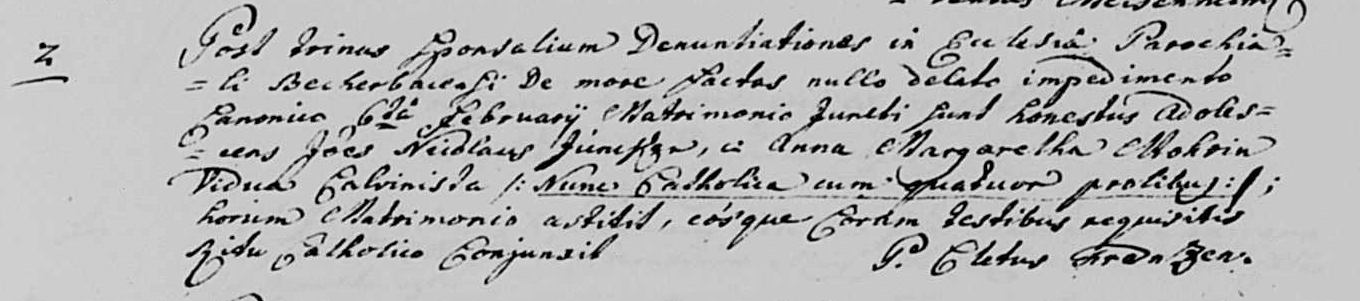 2
Post trinas sponsalium Denuntiationes in Ecclesiâ Parochia=
=li Becherbacensi De more factas nullo delato impedimento
Canonico 6tâ februarÿ Matrimonio Juncti sunt honestus adoles=
=cens Joës Nicolaus, et Anna Margaretha Mohrin
Vidua Calvinista /: Nunc Catholica cum quatuor prolibus :/ ;
horum Matrimonio astitit, eósque Coram testibus requisitis
Ritu Catholico Conjunxit P. Cletus Frantzen.